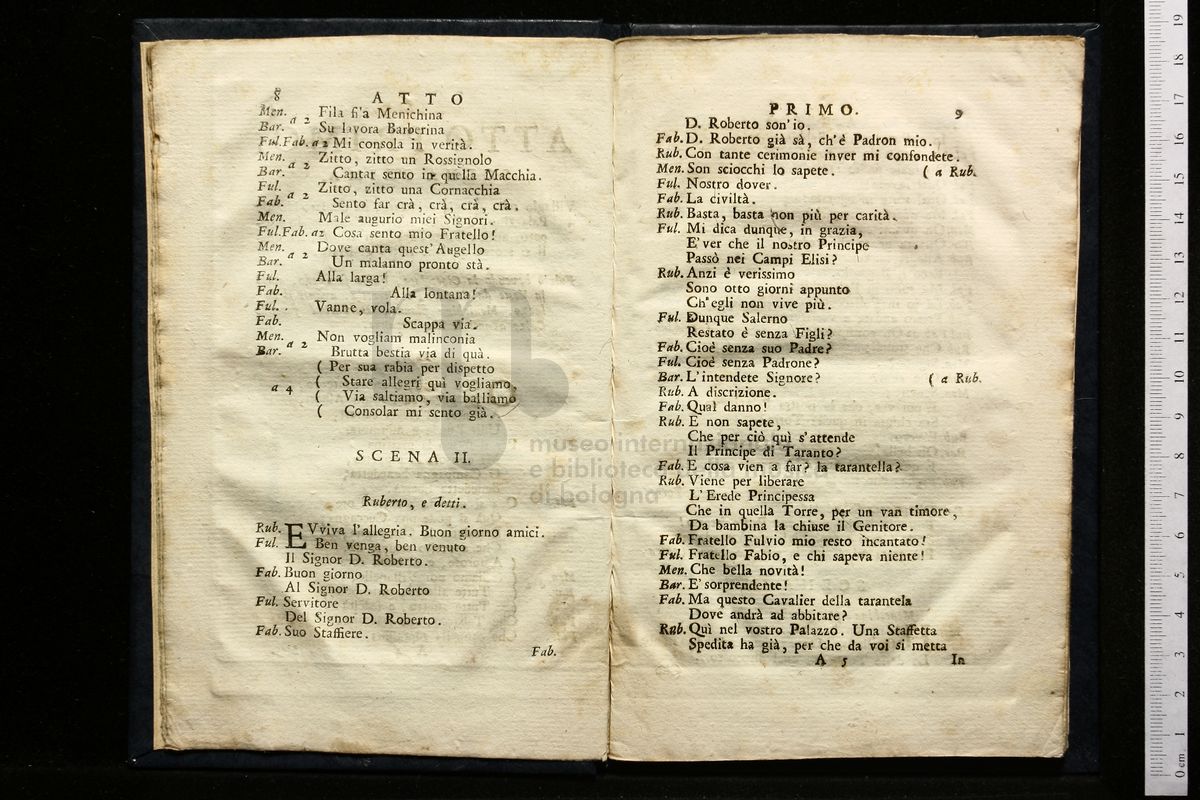 8
ATTO
Men. a 2 Fila fi'a Menichina
Bar. Su lavora Barberina
Ful.Fab. a 2 Mi consola in verità.
Men. a 2 Zitto, zitto un Rossignolo
Bar. Cantar sento in quella Macchia.
Ful. a 2 Zitto, zitto una Cornacchia
Fab. Sento far crà, crà, crà, crà.
Men. Male augurio miei Signori.
Ful.Fab. a2 Cosa sento mio Fratello!
Men. a 2 Dove canta quest'Augello
Bar. Un malanno pronto stà.
Ful. Alla larga!
Fab. Alla lontana!
Ful. Vanne, vola.
Fab. Scappa via.
Men. a 2 Non vogliam malinconia
Bar. Brutta bestia via di quà.
( Per sua rabia per dispetto
a 4 ( Stare allegri quì vogliamo,
( Via saltiamo, via balliamo
( Consolar mi sento già.
SCENA II.
Ruberto, e detti.
Rub. EVviva l'allegria. Buon giorno amici.
Ful. Ben venga, ben venuto
Il Signor D. Roberto.
Fab. Buon giorno
Al Signor D. Roberto
Ful. Servitore
Del Signor D. Roberto.
Fab. Suo Staffiere.
Fab.
PRIMO. 9
D. Roberto son'io.
Fab. D. Roberto già sà, ch'è Padron mio.
Rub. Con tante cerimonie inver mi confondete.
Men. Son sciocchi lo sapete. ( a Rub.
Ful. Nostro dover.
Fab. La civiltà.
Rub. Basta, basta non più per carità.
Ful. Mi dica dunque, in grazia,
E'ver che il nostro Principe
Passò nei Campi Elisi?
Rub. Anzi è verissimo
Sono otto giorni appunto
Ch'egli non vive più.
Ful. Dunque Salerno
Restato è senza Figli?
Fab. Cioè senza suo Padre?
Ful. Cioè senza Padrone?
Bar. L'intendete Signore? ( a Rub.
Rub. A discrizione.
Fab. Qual danno!
Rub. E non sapete,
Che per ciò quì s'attende
Il Principe di Taranto?
Fab. E cosa vien a far? la tarantella?
Rub. Viene per liberare
L'Erede Principessa
Che in quella Torre, per un van timore,
Da bambina la chiuse il Genitore.
Fab. Fratello Fulvio mio resto incantato!
Ful. Fratello Fabio, e chi sapeva niente!
Men. Che bella novità!
Bar. E' sorprendente!
Fab. Ma questo Cavalier della tarantela
Dove andrà ad abbitare?
Rub. Quì nel vostro Palazzo. Una Staffetta
Spedita ha già, per che da voi si metta
A 5 In
museo inter
e bibliotec
di bologna
0 cm 1 2 3 4 5 6 7 8 9 10 11 12 13 14 15 16 17 18 19